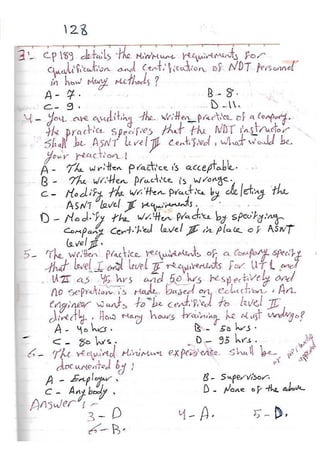 128
3:- CP189 details the Minimum requirements for
qualification and certification of NDT Personnel
in how Many Methods ?
A - 7. B - 8.
C - 9. D - 11.
4 - You are auditing the written practice of a company.
The practice specifies that the NDT instructor
Shall be ASNT level III Certified, what would be
your reaction !
A - The written practice is acceptable.
B - The written practice is wronge.
C - Modify the written practice by deleting the
ASNT level III requirements.
D - Modify the written practice by specifying
Company certified level III in place of ASNT
level III.
5 - The written practice requirements of a company specify
that level I and level II requirements for UT I and
UT II as 45 hrs and 50 hrs respectively and
no sepration is made based on eduction. An
engineer wants to be certified to level II
directly. How many hours training he must undergo?
A - 40 hrs. B - 50 hrs.
C - 80 hrs. D - 95 hrs.
6 - The required Minimum experience shall be
documented by !
A - Employer. B - Supervisor.
C - Any body. D - None of the above
Answer :-
3 - D 4 - A. 5 - D.
6 - B.